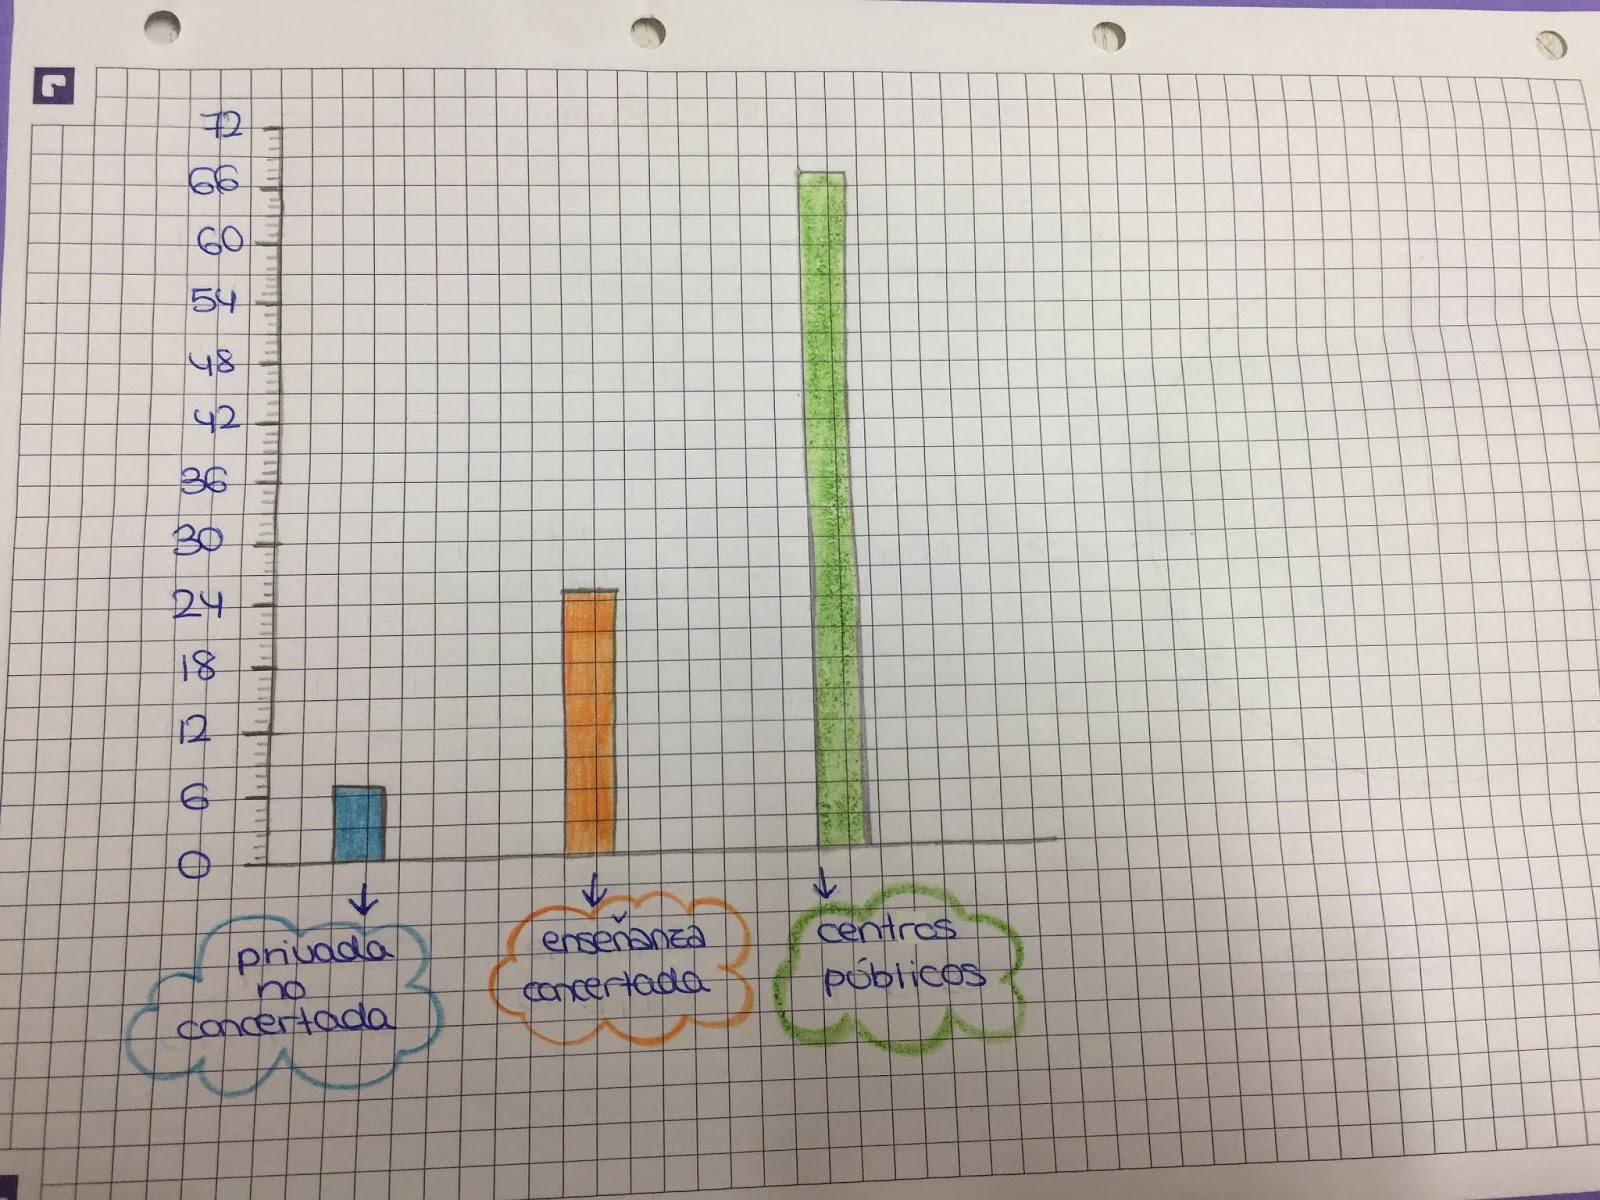 72
66
60
54
48
42
36
30
24
18
12
6
0
privada
no
concertada
enseñanza
concertada
centros
públicos